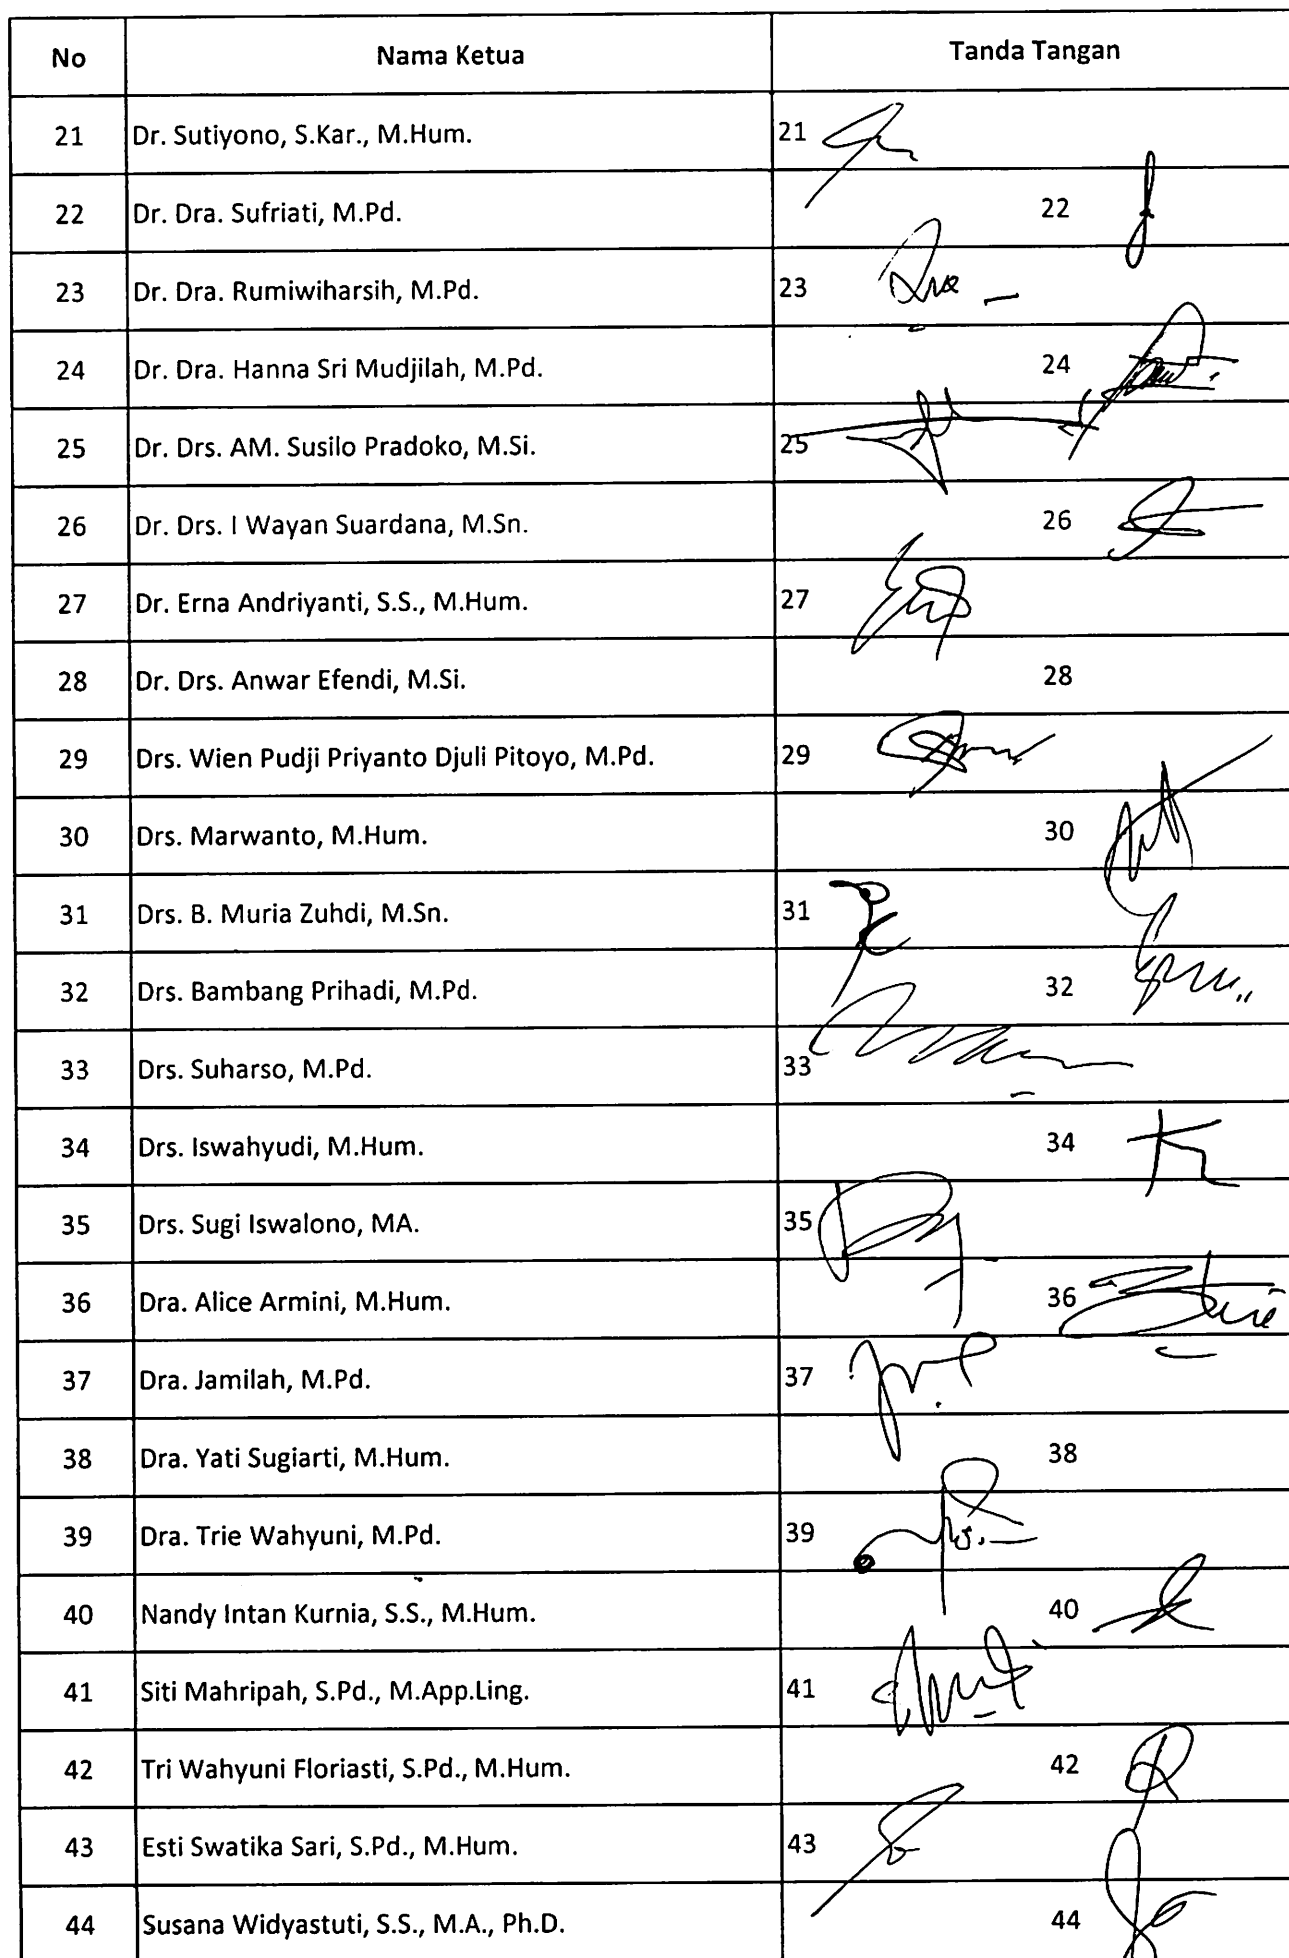 No Nama Ketua Tanda Tangan
21 Dr. Sutiyono, S.Kar., M.Hum. 21
22 Dr. Dra. Sufriati, M.Pd. 22
23 Dr. Dra. Rumiwiharsih, M.Pd. 23
24 Dr. Dra. Hanna Sri Mudjilah, M.Pd. 24
25 Dr. Drs. AM. Susilo Pradoko, M.Si. 25
26 Dr. Drs. I Wayan Suardana, M.Sn. 26
27 Dr. Erna Andriyanti, S.S., M.Hum. 27
28 Dr. Drs. Anwar Efendi, M.Si. 28
29 Drs. Wien Pudji Priyanto Djuli Pitoyo, M.Pd. 29
30 Drs. Marwanto, M.Hum. 30
31 Drs. B. Muria Zuhdi, M.Sn. 31
32 Drs. Bambang Prihadi, M.Pd. 32
33 Drs. Suharso, M.Pd. 33
34 Drs. Iswahyudi, M.Hum. 34
35 Drs. Sugi Iswalono, MA. 35
36 Dra. Alice Armini, M.Hum. 36
37 Dra. Jamilah, M.Pd. 37
38 Dra. Yati Sugiarti, M.Hum. 38
39 Dra. Trie Wahyuni, M.Pd. 39
40 Nandy Intan Kurnia, S.S., M.Hum. 40
41 Siti Mahripah, S.Pd., M.App.Ling. 41
42 Tri Wahyuni Floriasti, S.Pd., M.Hum. 42
43 Esti Swatika Sari, S.Pd., M.Hum. 43
44 Susana Widyastuti, S.S., M.A., Ph.D. 44